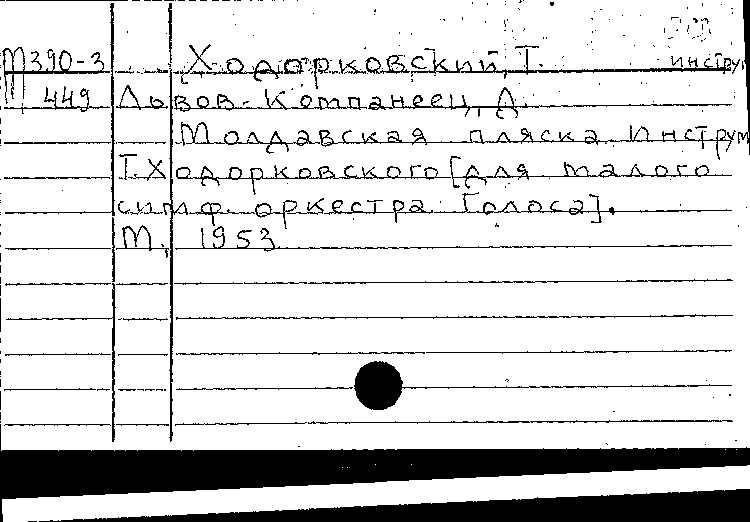 М390-3 Ходорковский, Т. инстру
449 Львов-Компанеец, Д.
Молдавская пляска. Инструм
Т. Ходорковского [для малого
симф. оркестра. Голоса].
М., 1953